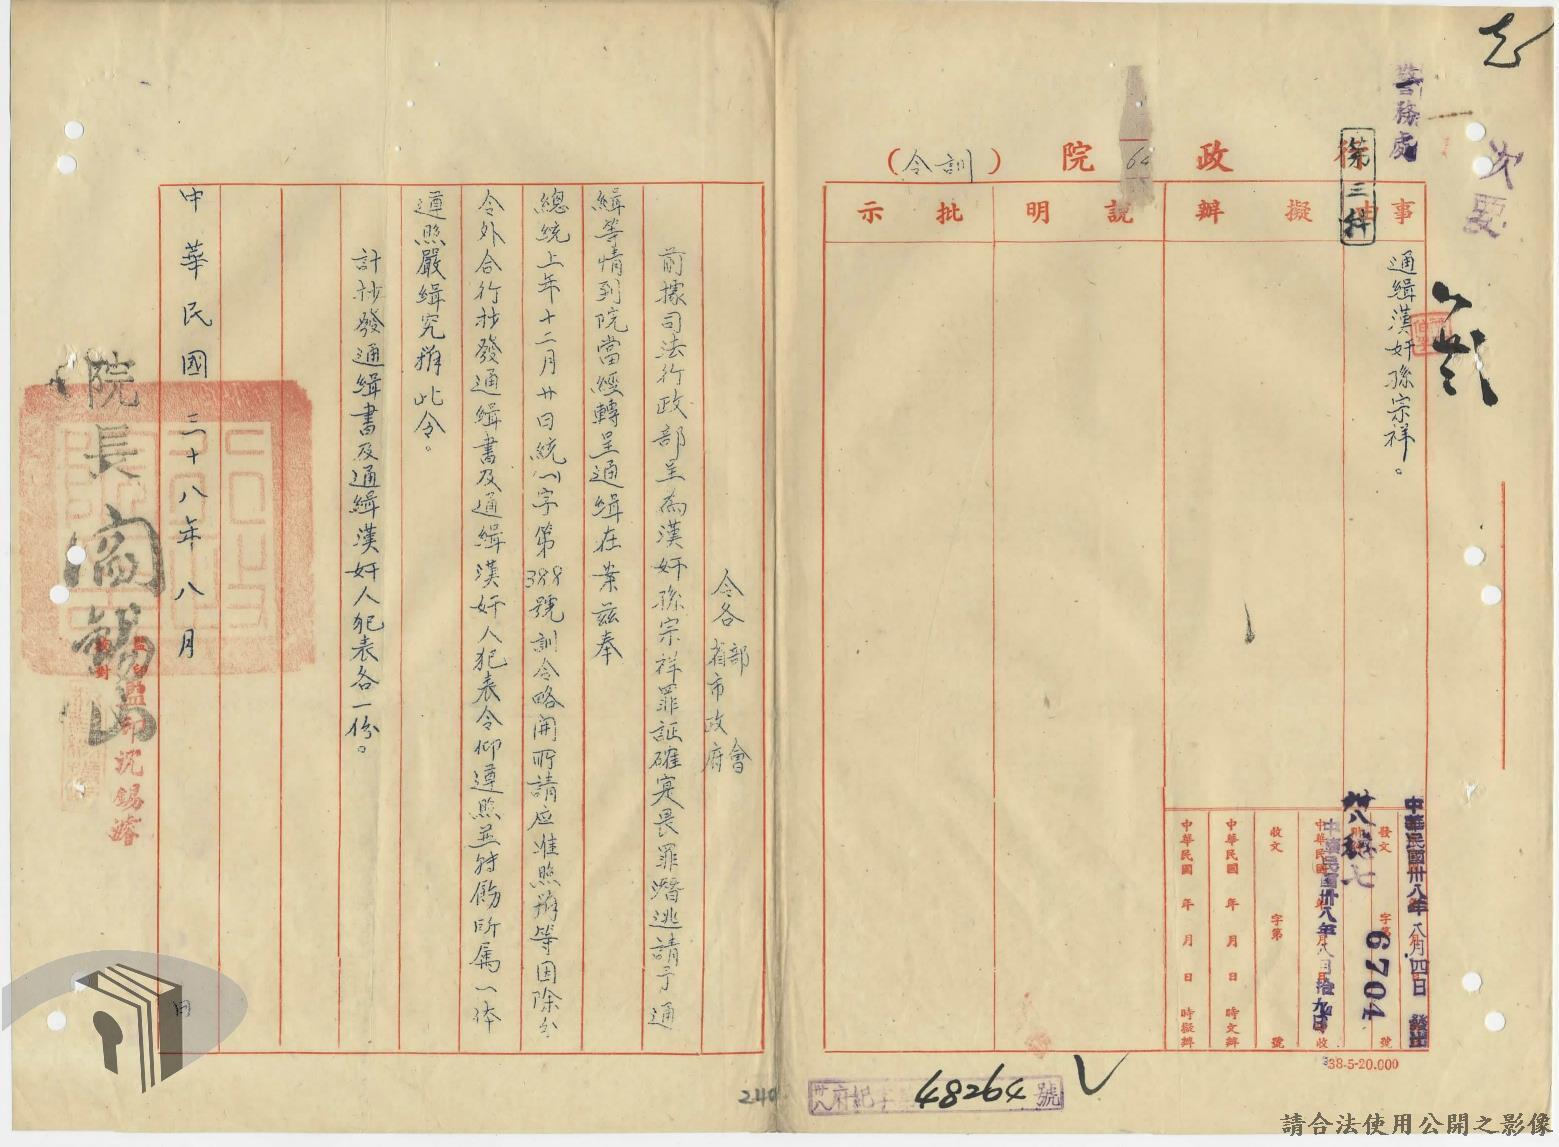 次要
警務處
第三科
行政院（訓令）
64
事由
擬辦
說明
批示
通緝漢奸孫宗祥。
中華民國卅八年八月四日發出
發文 字第 號
6704
中華民國卅八年八月拾九日
收文 字第 號
中華民國 年 月 日 時交辦
中華民國 年 月 日 時擬辦
38-5-20.000
卅八府 字第48264號
240
令各部會
省市政府
前據司法行政部呈為漢奸孫宗祥罪証確實畏罪潛逃請予通
緝等情到院當經轉呈通緝在案茲奉
總統上年十二月廿日統(一)字第388號訓令略開所請应准照辦等因除分
令外合行抄發通緝書及通緝漢奸人犯表令仰遵照並轉飭所屬一体
遵照嚴緝究辦此令。
計抄發通緝書及通緝漢奸人犯表各一份。
院長閻錫山
中華民國三十八年八月 日
監印
校對
監印沈錫
請合法使用公開之影像